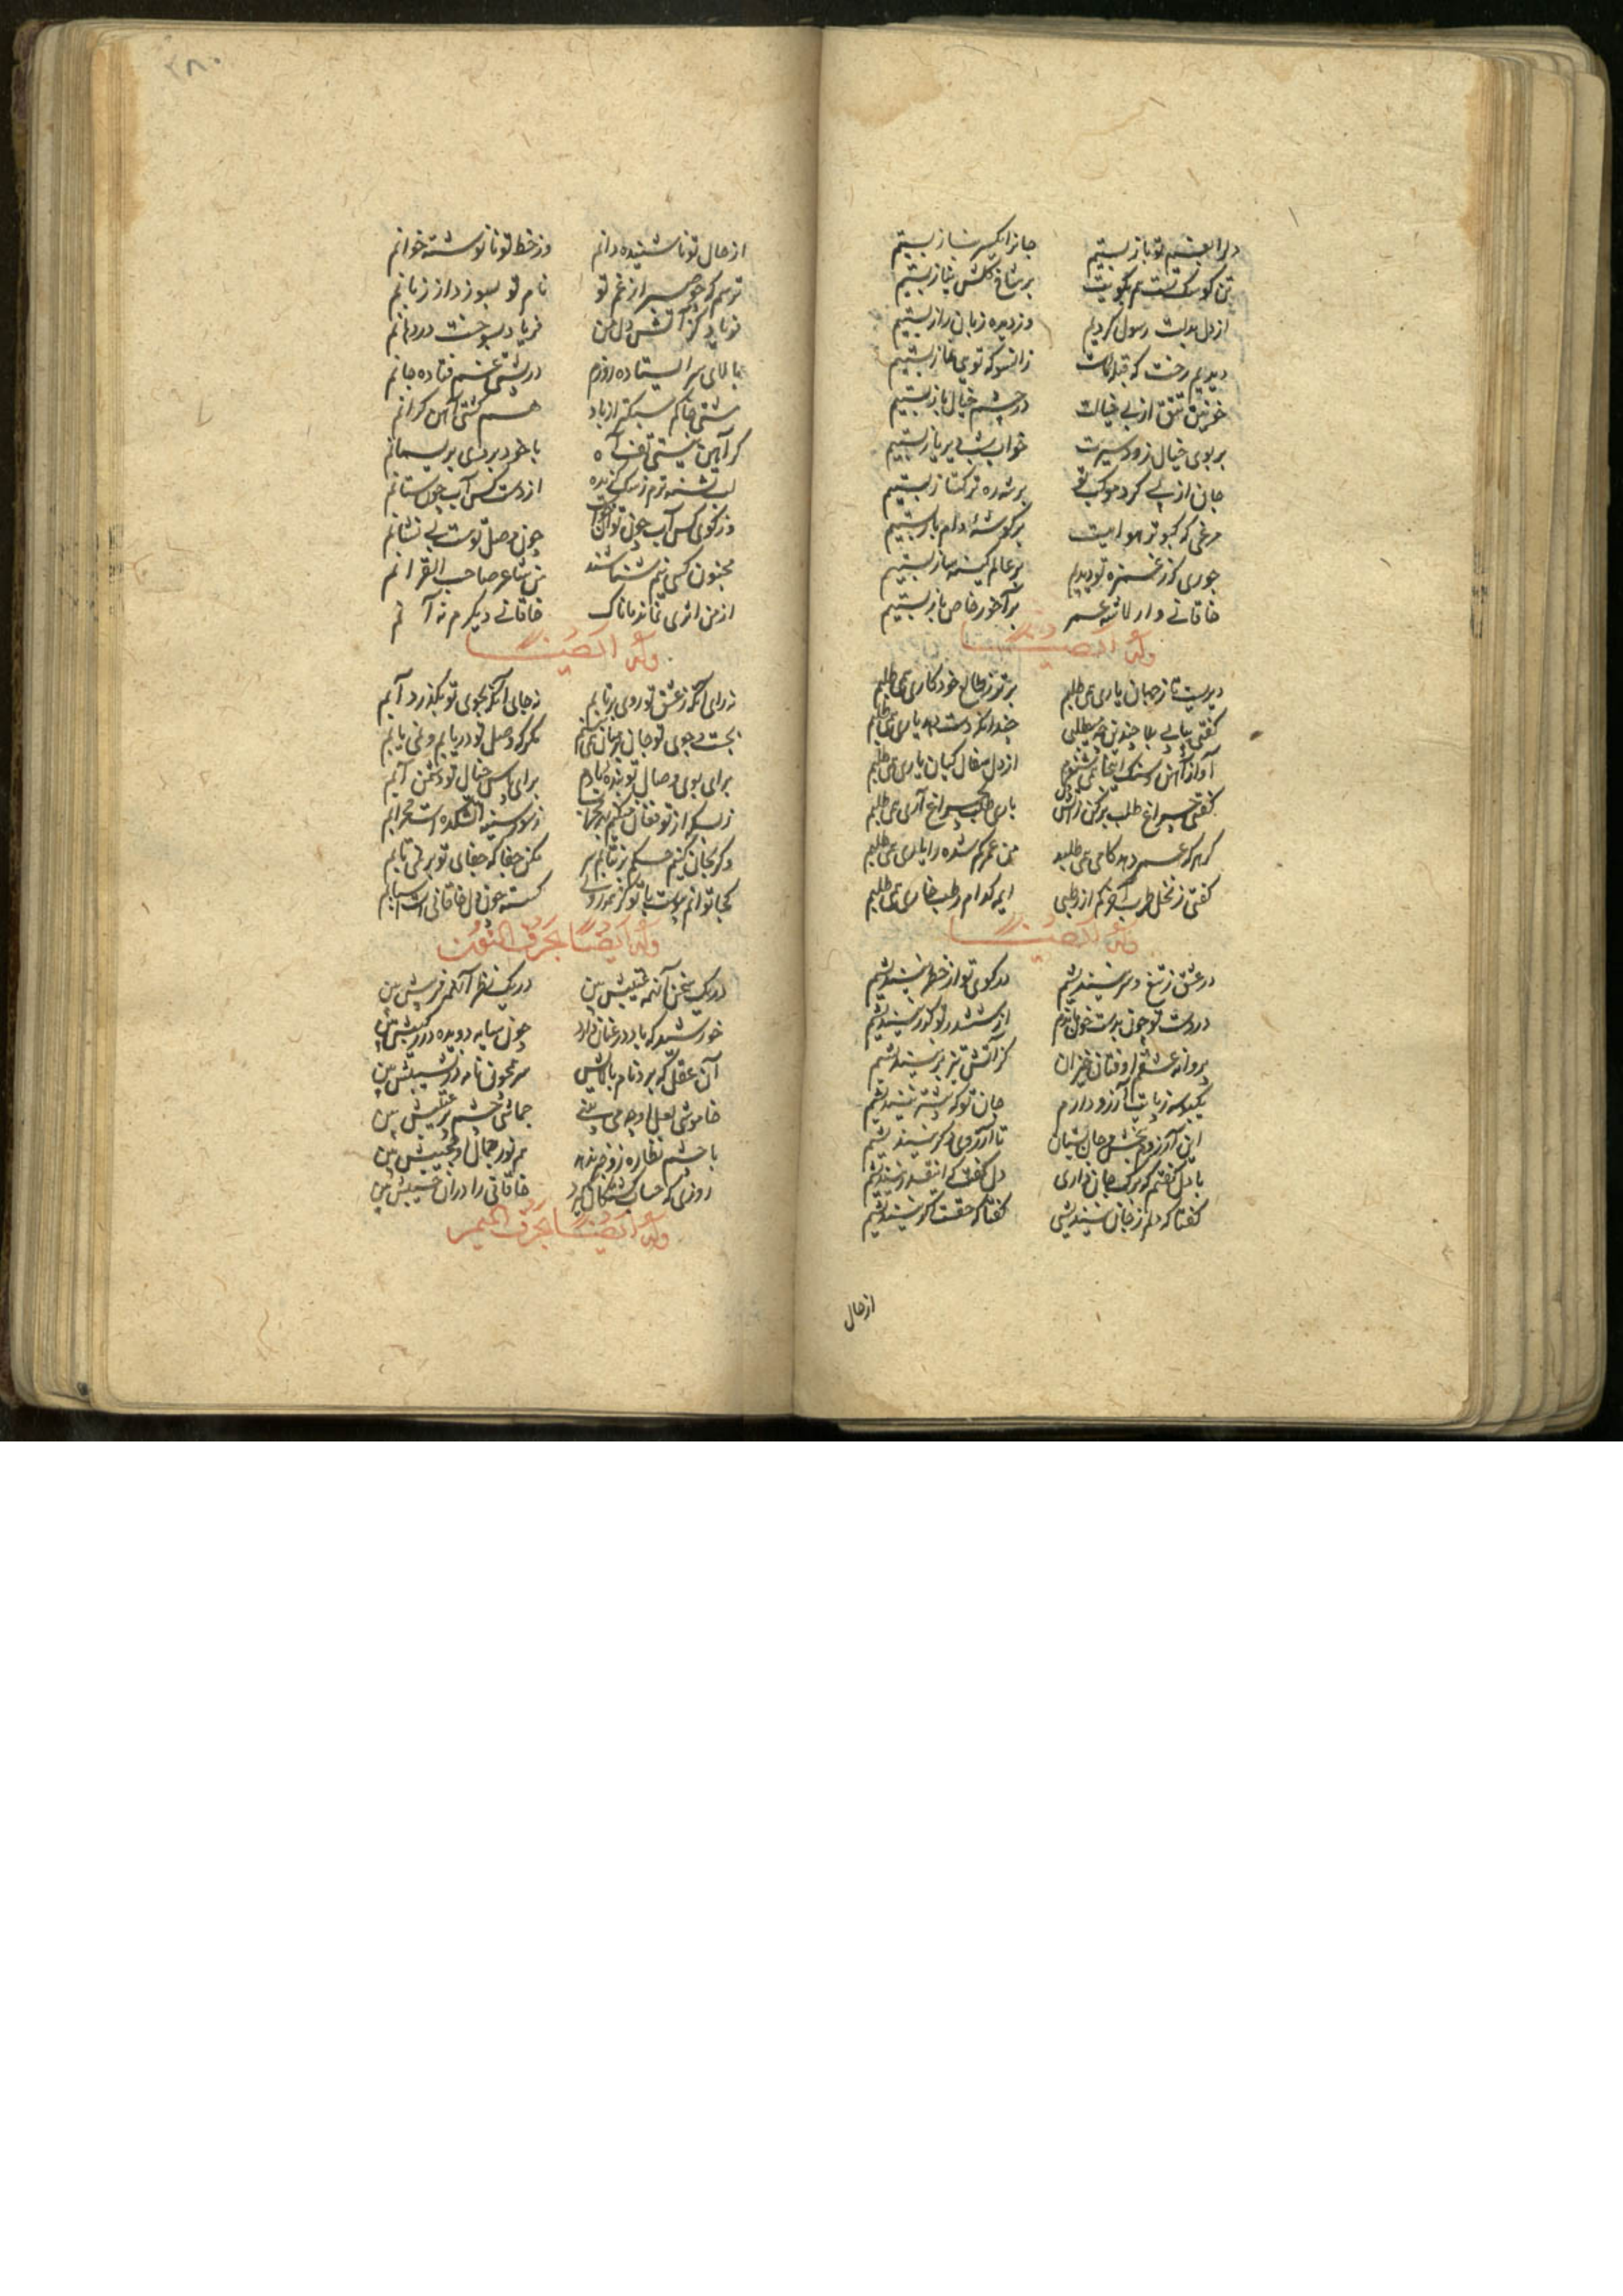 دلرا بغم تو باز بستیم جانرا بکمر نیاز بستیم
تن کو سک تست هم بکویت بر شاخ کلش نیاز بستیم
از دل بدلت رسول کردیم وز دیده زبان راز بستیم
دیدیم رخت که قبله ماست زانسو که تویی نماز بستیم
خونین تتق از پی خیالت در چشم خیال باز بستیم
بر بوی خیال زود سیرت خواب شب دیر یاز بستیم
جان از پی کرد موکب تو بر شه ره ترکتاز بستیم
مرغی که کبوتر هواییست بر کوشه دام باز بستیم
جوری که ز غمزه تو دیدیم بر عالم کینه ساز بستیم
خاقانی وار لاشه عمر بر آخور خاص باز بستیم
وله ایضا
دیریست تا ز جهان یاری می طلبم بر تو ز طالع خود کاری می طلبم
کفتی بیابی بیا چندین چه میطلبی چندانکه دست دهد یاری می طلبم
آواز آهن و سنک اینجا نمی شنوم از دل سفال کیان یاری می طلبم
کفتی چراغ طلب بر کن ز آتش دل باری طلب چراغ آری می طلبم
کر هر که عمر دهد کامی می طلبد من عمر کم شده را یاری می طلبم
کفتی ز نخل طرب آخر کم از رطبی ایمه کدام رطب خاری می طلبم
وله ایضا
در عشق ز تیغ و سر نیندیشم در کوی تو از خطر نیندیشم
در دست تو چون بدست خون ماندم از ششدر تو کذر نیندیشم
پروانه عشقم اوفتان خیزان کز آتش تیز پر نیندیشم
یکبوسه ز پایت آرزو دارم جان تو که بیشتر نیندیشم
این آرزویم ببخش و جان بستان تا آرزوی دکر نیندیشم
با دل کفتم که ترک جان داری دل کفت کز اینقدر نیندیشم
کفتا که دلم ز جان نیندیشی کفتا که حقست کر نیندیشم
از حال
از حال تو نا شنیده دانم وز خط تو نا نوشته خوانم
ترسم که چو میرم از غم تو نام تو بسوزد از زبانم
فریاد کز آتش دل من فریاد بسوخت در دهانم
بالای سر ایستاده روزم در پستی غم فتاده جانم
مشتی خاکم سبکتر از باد هم کشتی آهن کرانم
کر آهن نیستی تف آه با خود بردی بریسمانم
لب تشنه ترم ز سک کزیده از دست کس آب چون ستانم
وز کوی کس آب چون توان خواست چون وصل تو هست بی نشانم
مجنون کسی نیم شناسند من شاعر صاحب القرانم
از من اثری نماند ماناک خاقانی دیکرم نه آنم
وله ایضا
نه رای آنکه ز عشق تو روی بر تابم نه جای آنکه بجوی تو بکذرد آبم
بجست و جوی تو جان بر میان می بندم مکر که وصل تو دریابم و نمی یابم
برای بوی وصال تو بنده بادم برای پاس خیال تو دشمن آبم
ز بسکه از تو فغان میکنم بهر محراب ز سوز سینه آتشکده است محرابم
وکر بجان کنیم حکم بر نتابم سر مکن جفا که جفای تو بر نمی تابم
کجا توانم پیوست با تو کز همه روی کسسته چون دل خاقانی است اسبابم
وله ایضا بحرف النون
در یک سخن آنهمه عتیبش بین در یک نظر آنهمه فریبش بین
خورشید که باد در عنان دارد چون سایه دویده در رکیبش بین
آن عقل که برد نام بالایش سر همچون نامه در نشیبش بین
خاموشی لعل او چه می بینی جماشی چشم پر عتیبش بین
با چشم نظاره زو چه بندد هم نور جمال او حجیبش بین
روزی که حساب کشتکان کیرد خاقانی را در آن حسیبش بین
وله ایضا بحرف المیم